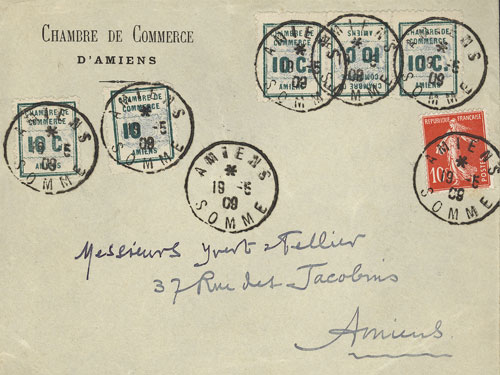 CHAMBRE DE COMMERCE
D'AMIENS
CHAMBRE DE COMMERCE
10 C.
AMIENS
CHAMBRE DE COMMERCE
10 C.
AMIENS
CHAMBRE DE COMMERCE
10 C.
AMIENS
CHAMBRE DE COMMERCE
10 C.
AMIENS
CHAMBRE DE COMMERCE
10
AMIENS
REPUBLIQUE FRANÇAISE
10
POSTES
AMIENS
19 -5
09
SOMME
AMIENS
19 -5
09
SOMME
Messieurs Yvert & Tellier
37 Rue des Jacobins
Amiens